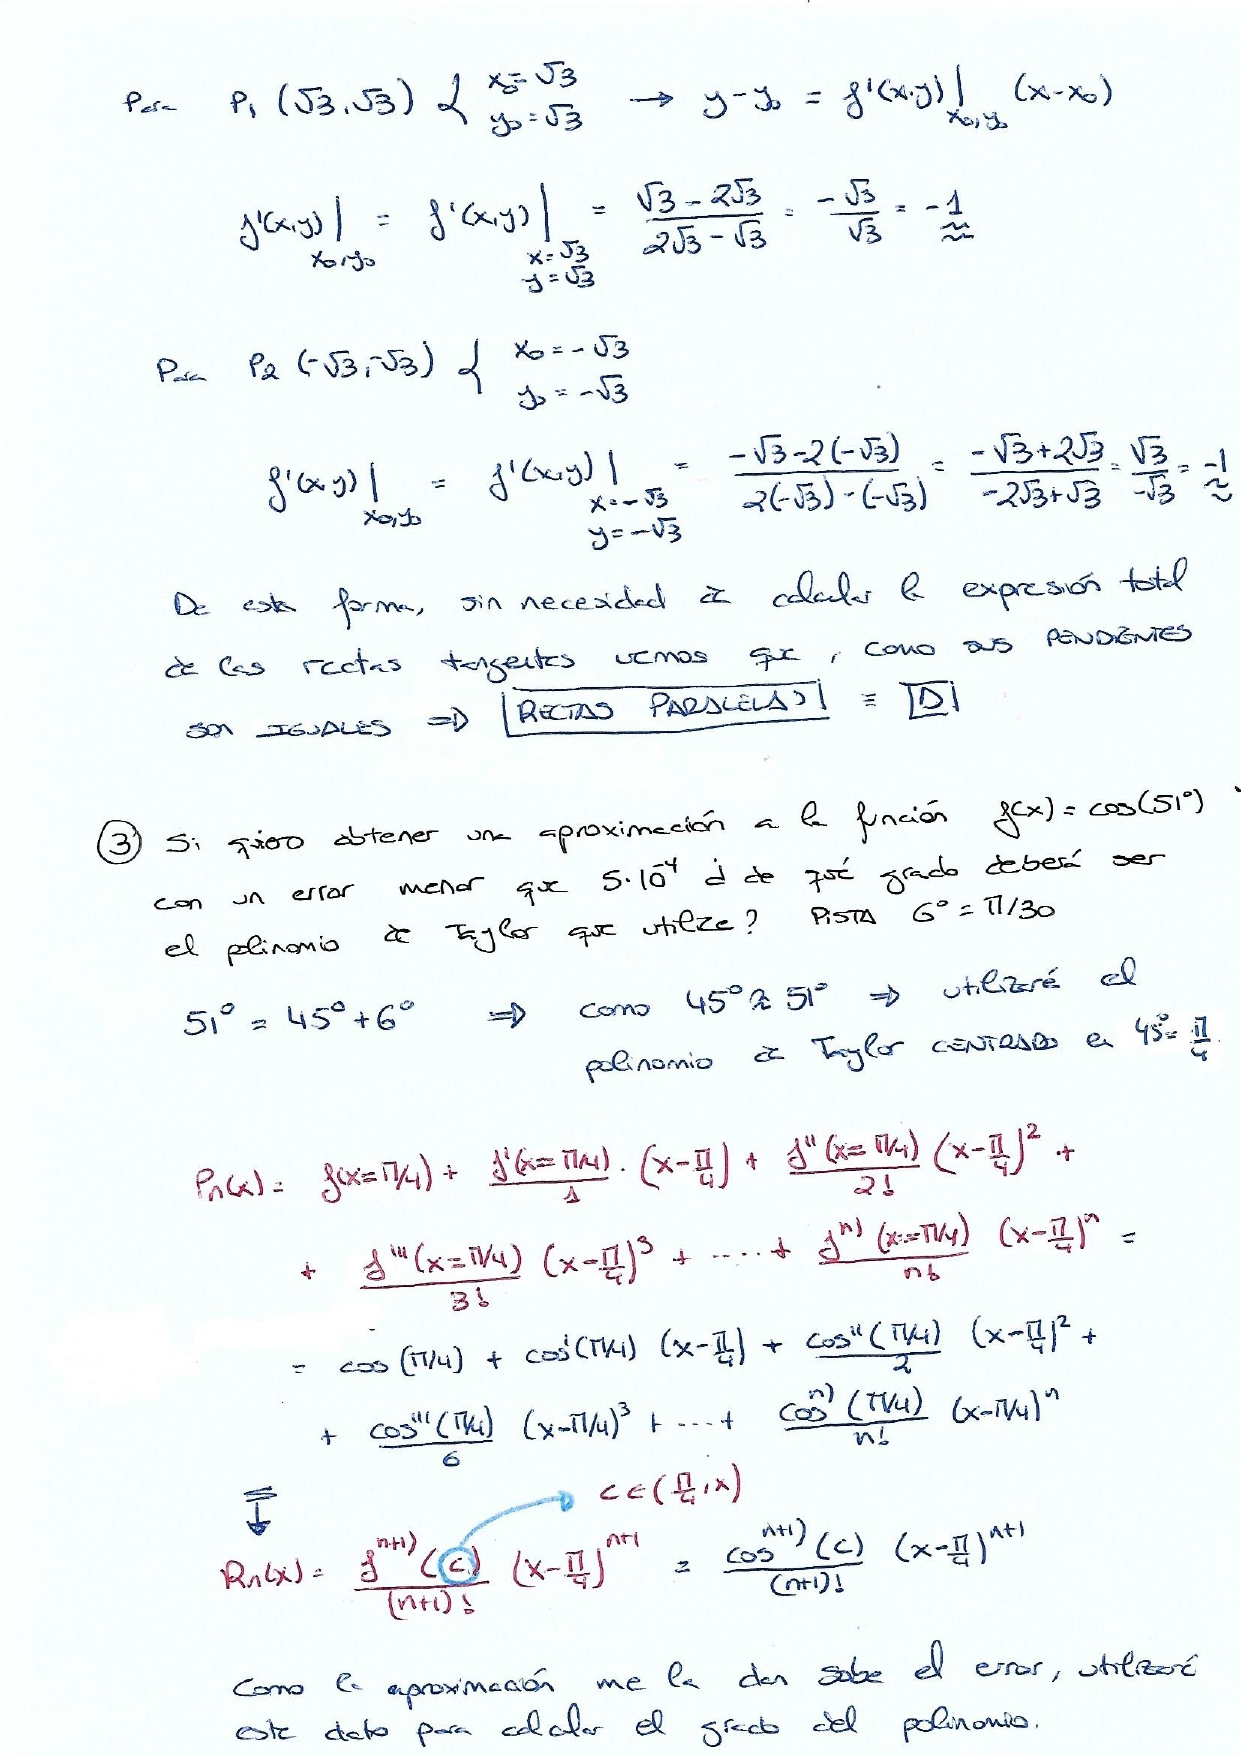 Para P1 (√3,√3) { x0=√3 y0=√3 → y-y0 = f'(x,y)|x0,y0 (x-x0)
f'(x,y)|x0,y0 = f'(x,y)|x=√3 y=√3 = (√3-2√3)/(2√3-√3) = -√3/√3 = -1
Para P2 (-√3,-√3) { x0=-√3 y0=-√3
f'(x,y)|x0,y0 = f'(x,y)|x=-√3 y=-√3 = (-√3-2(-√3))/(2(-√3)-(-√3)) = (-√3+2√3)/(-2√3+√3) = √3/-√3 = -1
De esta forma, sin necesidad de calcular la expresión total
de las rectas tangentes vemos que, como sus PENDIENTES
SON IGUALES ⇒ |RECTAS PARALELAS| ≡ |D|
③ Si quiero obtener una aproximación a la función f(x)=cos(51°)
con un error menor que 5·10⁻⁴ ¿de qué grado deberá ser
el polinomio de Taylor que utilize? PISTA 6°=π/30
51° = 45°+6° ⇒ como 45°≈51° ⇒ utilizaré el
polinomio de Taylor CENTRADO en 45°=π/4
Pn(x) = f(x=π/4) + f'(x=π/4)/1 · (x-π/4) + f''(x=π/4)/2! (x-π/4)² +
+ f'''(x=π/4)/3! (x-π/4)³ + ····+ fⁿ⁾(x=π/4)/n! (x-π/4)ⁿ =
= cos(π/4) + cos'(π/4) (x-π/4) + cos''(π/4)/2 (x-π/4)² +
+ cos'''(π/4)/6 (x-π/4)³ + ···+ cosⁿ⁾(π/4)/n! (x-π/4)ⁿ
c∈(π/4,x)
Rn(x) = fⁿ⁺¹⁾(c)/(n+1)! (x-π/4)ⁿ⁺¹ = cosⁿ⁺¹⁾(c)/(n+1)! (x-π/4)ⁿ⁺¹
Como la aproximación me la dan sobe el error, utilizaré
este dato para calcular el grado del polinomio.